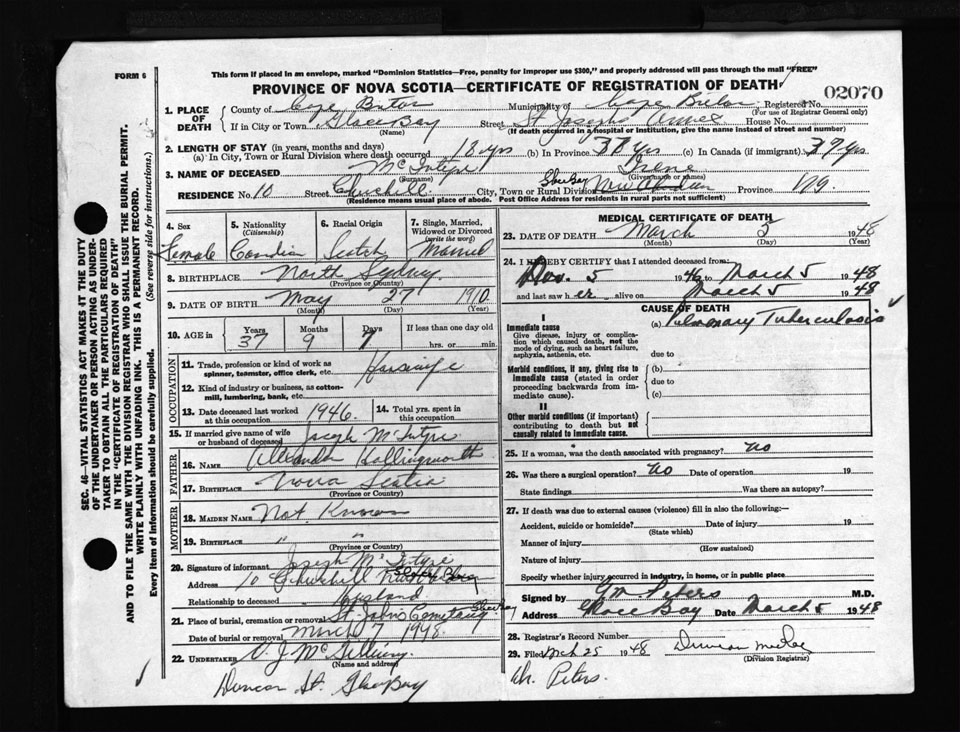 FORM 6
This form if placed in an envelope, marked "Dominion Statistics—Free, penalty for improper use $300," and properly addressed will pass through the mail "FREE"
PROVINCE OF NOVA SCOTIA—CERTIFICATE OF REGISTRATION OF DEATH
02070
1. PLACE OF DEATH
County of Cape Breton Municipality of Cape Breton Registered No.
(For use of Registrar General only)
If in City or Town Glace Bay Street St Josephs House No.
(Name) (If death occurred in a hospital or institution, give the name instead of street and number)
2. LENGTH OF STAY (in years, months and days)
(a) In City, Town or Rural Division where death occurred 18 yrs (b) In Province 37 yrs (c) In Canada (if immigrant) 37 yrs
3. NAME OF DECEASED McIntyre Irene
(Surname) (Given name or names)
RESIDENCE No. 10 Street Churchill City, Town or Rural Division Glace Bay New Aberdeen Province N.S.
(Residence means usual place of abode. Post Office Address for residents in rural parts not sufficient)
4. Sex
Female
5. Nationality (Citizenship)
Canadian
6. Racial Origin
Scotch
7. Single, Married, Widowed or Divorced (write the word)
Married
8. BIRTHPLACE North Sydney
(Province or Country)
9. DATE OF BIRTH May 27 1910
(Month) (Day) (Year)
10. AGE in Years Months Days If less than one day old
37 9 7 hrs. or min.
OCCUPATION
11. Trade, profession or kind of work as spinner, teamster, office clerk, etc. Housewife
12. Kind of industry or business, as cotton-mill, lumbering, bank, etc.
13. Date deceased last worked at this occupation 1946.
14. Total yrs. spent in this occupation
15. If married give name of wife or husband of deceased Joseph McIntyre
FATHER
16. NAME Hollingworth
17. BIRTHPLACE Nova Scotia
(Province or Country)
MOTHER
18. MAIDEN NAME Not Known
19. BIRTHPLACE " "
(Province or Country)
20. Signature of informant Joseph McIntyre
Address 10 Churchill
Relationship to deceased Husband
21. Place of burial, cremation or removal St. Johns Cemetary Glace Bay
Date of burial or removal March 7 1948.
22. UNDERTAKER
(Name and address)
Duncan St. Glace Bay
MEDICAL CERTIFICATE OF DEATH
23. DATE OF DEATH March 5 1948
(Month) (Day) (Year)
24. I HEREBY CERTIFY that I attended deceased from:
5 1946 to March 5 1948
and last saw h er alive on March 5 1948
CAUSE OF DEATH
I
Immediate cause
Give disease, injury or complication which caused death, not the mode of dying, such as heart failure, asphyxia, asthenia, etc.
(a) Pulmonary Tuberculosis
due to
Morbid conditions, if any, giving rise to immediate cause (stated in order proceeding backwards from immediate cause).
(b)
due to
(c)
II
Other morbid conditions (if important) contributing to death but not causally related to immediate cause.
25. If a woman, was the death associated with pregnancy? no
26. Was there a surgical operation? no Date of operation 19
State findings Was there an autopsy?
27. If death was due to external causes (violence) fill in also the following:—
Accident, suicide or homicide? Date of injury 19
(State which)
Manner of injury
(How sustained)
Nature of injury
Specify whether injury occurred in industry, in home, or in public place
Signed by Peters M.D.
Address Glace Bay Date March 5 1948
28. Registrar's Record Number
29. Filed Mch 25 1948 Duncan
(Division Registrar)
Peters.
SEC. 46—VITAL STATISTICS ACT MAKES IT THE DUTY
OF THE UNDERTAKER OR PERSON ACTING AS UNDER-
TAKER TO OBTAIN ALL THE PARTICULARS REQUIRED
IN THE "CERTIFICATE OF REGISTRATION OF DEATH"
AND TO FILE THE SAME WITH THE DIVISION REGISTRAR WHO SHALL ISSUE THE BURIAL PERMIT.
WRITE PLAINLY WITH UNFADING INK. THIS IS A PERMANENT RECORD.
Every item of Information should be carefully supplied. (See reverse side for instructions.)